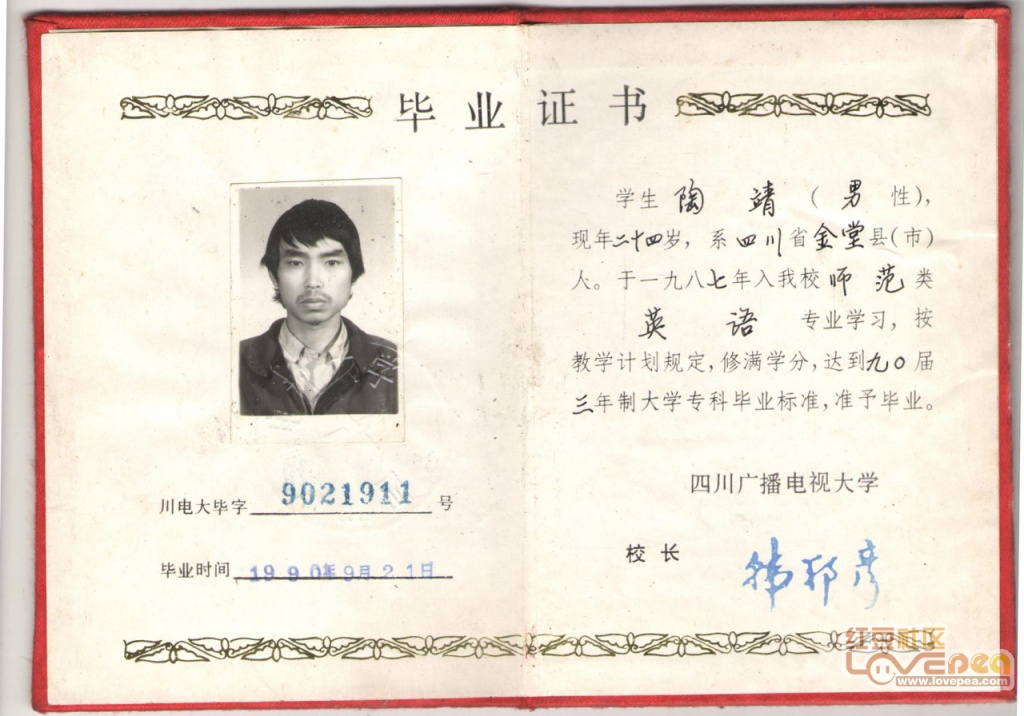 毕业证书
学生 陶靖（男性），
现年二十四岁，系四川省金堂县（市）
人。于一九八七年入我校师范类
英语 专业学习，按
教学计划规定，修满学分，达到九〇届
三年制大学专科毕业标准，准予毕业。
四川广播电视大学
校长 韩邦彦
川电大毕字 9021911 号
毕业时间 1990年9月21日
红豆社区
Lovepea
www.lovepea.com